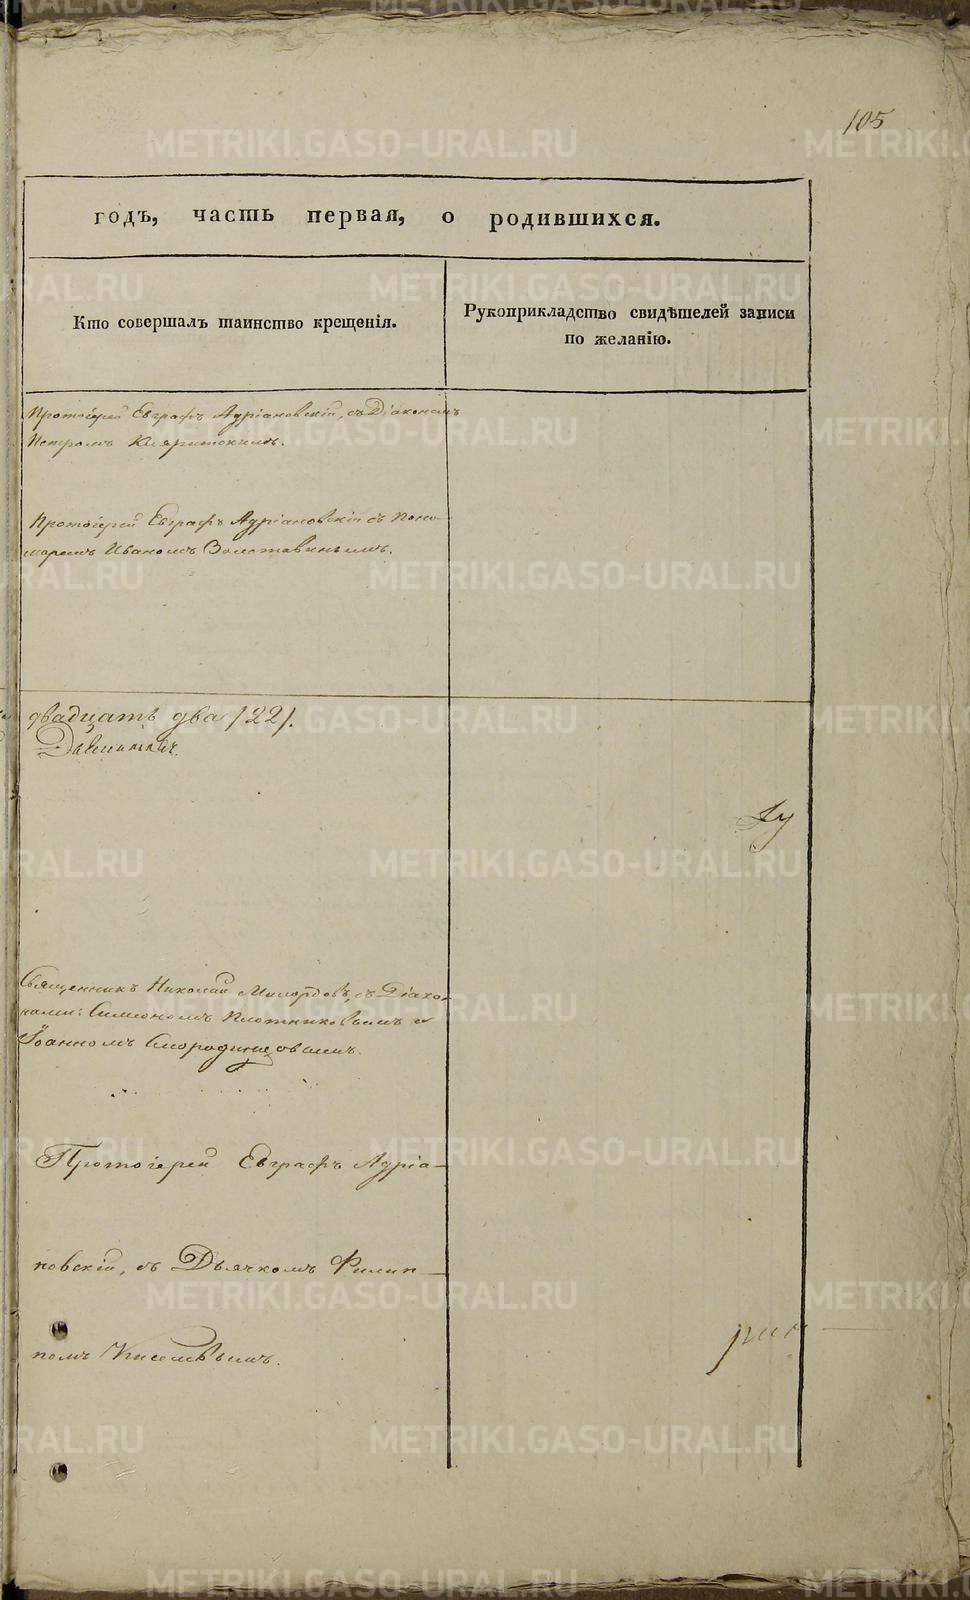 105
годъ, часть первая, о родившихся.
Кто совершалъ таинство крещенія.
Рукоприкладство свидѣтелей записи
по желанію.
Протоіерей Евграфъ Адріановскій, съ Діакономъ
Петромъ
Протоіерей Евграфъ Адріановскій съ Поно-
маремъ Иваномъ Золотавинымъ.
двадцать два /22/.
Священникъ Николай Милордовъ, съ Діако-
нами: Симеономъ Плотниковымъ и
Іоанномъ Смородинцовымъ.
Протоіерей Евграфъ Адріа-
новскій, съ Дьячкомъ Филип-
помъ Киселевымъ.
METRIKI.GASO-URAL.RU